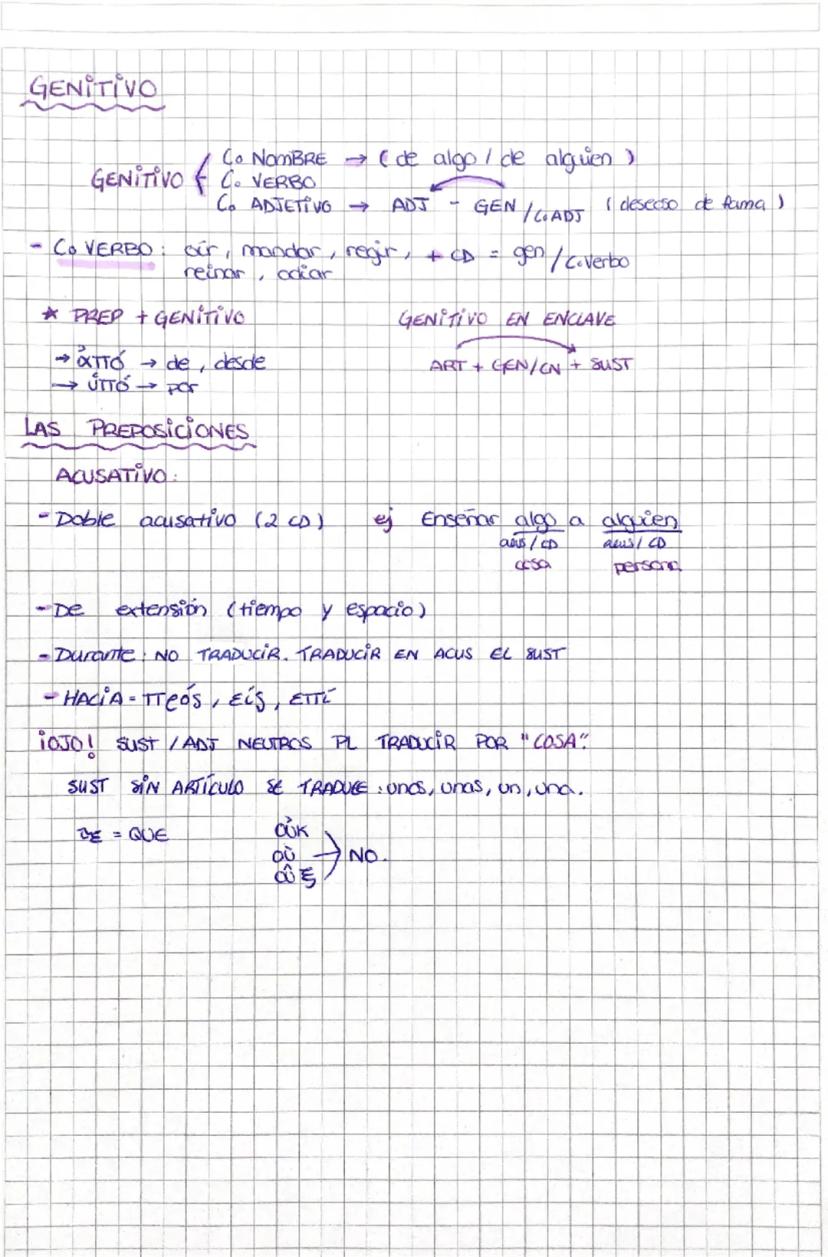 GENITIVO
C. NOMBRE → (de algo / de alguien)
GENITIVO { C. VERBO
C. ADJETIVO → ADJ - GEN / C. ADJ (deseoso de fama)
- C. VERBO: oír, mandar, regir, + CD = gen / C. Verbo
reinar, odiar
* PREP + GENITIVO
→ ἀπό → de, desde
→ ὑπό → por
GENITIVO EN ENCLAVE
ART + GEN/CN + SUST
LAS PREPOSICIONES
ACUSATIVO:
- Doble acusativo (2 CD) ej Enseñar algo a alguien
acus / CD acus / CD
cosa persona
- De extensión (tiempo y espacio)
- Durante: NO TRADUCIR. TRADUCIR EN ACUS EL SUST
- HACIA = πρós, εís, επí
¡OJO! SUST / ADJ NEUTROS PL TRADUCIR POR "COSA".
SUST SIN ARTÍCULO SE TRADUCE: unos, unas, un, una.
= QUE
οὐκ
οὐ → NO.